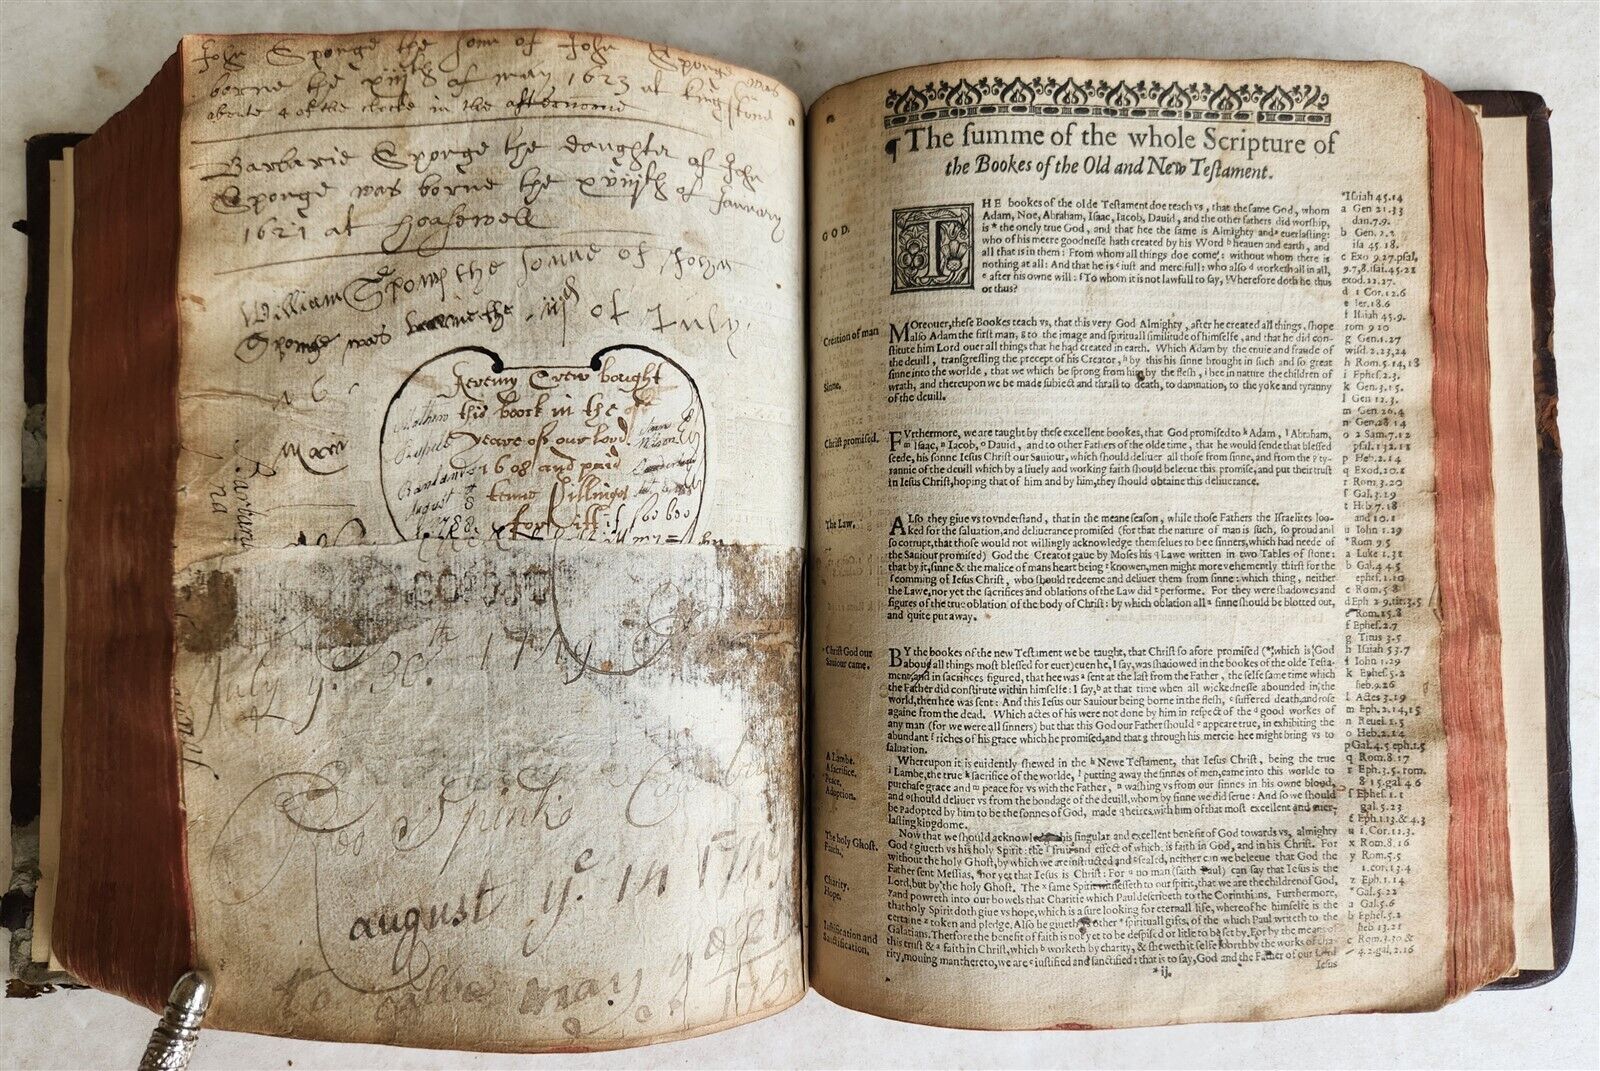 John Sponge the sonne of John Sponge was
borne the of may 1623 at kingstone
aboute 4 of the clocke in the afternoone
Barbarie Sponge the daughter of John
Sponge was borne the xviijth of January
1621 at
William the sonne of John
Sponge was the iijd of July
Jeremy Crew bought
this boock in the
yeare of our Lord
1608 and paid
August
1788
July ye 30th 1749
Spink
august ye 14 1749
may ye
¶ The summe of the whole Scripture of
the Bookes of the Old and New Testament.
GOD.
THE bookes of the olde Testament doe teach vs, that the same God, whom
Adam, Noe, Abraham, Isaac, Iacob, Dauid, and the other fathers did worship,
is * the onely true God, and that hee the same is Almighty and a euerlasting:
who of his meere goodnesse hath created by his Word b heauen and earth, and
all that is in them: From whom all things doe come: without whom there is
nothing at all: And that he is c iust and mercifull: who also d worketh all in all,
e after his owne will: f To whom it is not lawfull to say, Wherefore doth he thus
or thus?
Creation of man
Moreouer, these Bookes teach vs, that this very God Almighty, after he created all things, shope
also Adam the first man, g to the image and spirituall similitude of himselfe, and that he did con-
stitute him Lord ouer all things that he had created in earth. Which Adam by the enuie and fraude of
the deuill, transgressing the precept of his Creator, h by this his sinne brought in such and so great
Sinne.
sinne into the worlde, that we which be sprong from him by the flesh, i bee in nature the children of
wrath, and thereupon we be made subiect and thrall to death, to damnation, to the yoke and tyranny
of the deuill.
Christ promised.
FVrthermore, we are taught by these excellent bookes, that God promised to k Adam, l Abraham,
m Isaac, n Iacob, o Dauid, and to other Fathers of the olde time, that he would sende that blessed
seede, his sonne Iesus Christ our Sauiour, which should deliuer all those from sinne, and from the p ty-
rannie of the deuill which by a liuely and working faith should beleeue this promise, and put their trust
in Iesus Christ, hoping that of him and by him, they should obtaine this deliuerance.
The Law.
ALso they giue vs to vnderstand, that in the meane season, while those Fathers the Israelites loo-
ked for the saluation, and deliuerance promised (for that the nature of man is such, so proud and
so corrupt, that those would not willingly acknowledge themselues to bee sinners, which had neede of
the Sauiour promised) God the Creator gaue by Moses his q Lawe written in two Tables of stone:
that by it, sinne & the malice of mans heart being r knowen, men might more vehemently thirst for the
s comming of Iesus Christ, who should redeeme and deliuer them from sinne: which thing, neither
the Lawe, nor yet the sacrifices and oblations of the Law did t performe. For they were shadowes and
figures of the true oblation of the body of Christ: by which oblation all u sinne should be blotted out,
and quite put away.
Christ God our
Sauiour came.
BY the bookes of the new Testament we be taught, that Christ so afore promised (*which is God
aboue all things most blessed for euer) euen he, I say, was shadowed in the bookes of the olde Testa-
ment, and in sacrifices figured, that hee was a sent at the last from the Father, the selfe same time which
the Father did constitute within himselfe: I say, b at that time when all wickednesse abounded in the
world, then hee was sent: And this Iesus our Sauiour being borne in the flesh, c suffered death, and rose
againe from the dead. Which actes of his were not done by him in respect of the d good workes of
any man (for we were all sinners) but that this God our Father should e appeare true, in exhibiting the
abundant f riches of his grace which he promised, and that g through his mercie hee might bring vs to
saluation.
A Lambe.
A sacrifice.
Peace.
Adoption.
Whereupon it is euidently shewed in the h Newe Testament, that Iesus Christ, being the true
i Lambe, the true k sacrifice of the worlde, l putting away the sinnes of men, came into this worlde to
purchase grace and m peace for vs with the Father, n washing vs from our sinnes in his owne blood,
and o should deliuer vs from the bondage of the deuill, whom by sinne we did serue: And so we should
be p adopted by him to be the sonnes of God, made q heires, with him of that most excellent and euer-
lasting kingdome.
The holy Ghost.
Faith.
Now that we should acknowledge this singular and excellent benefit of God towards vs, almighty
God r giueth vs his holy Spirit: the s fruit and effect of which is faith in God, and in his Christ. For
without the holy Ghost, by which we are instructed and t sealed, neither can we beleeue that God the
Father sent Messias, nor yet that Iesus is Christ: For u no man (saith Paul) can say that Iesus is the
Charity.
Hope.
Lord, but by the holy Ghost. The x same Spirit witnesseth to our spirit, that we are the children of God,
y and powreth into our bowels that Charitie which Paul describeth to the Corinthians. Furthermore,
that holy Spirit doth giue vs hope, which is a sure looking for eternall life, whereof he himselfe is the
certaine z token and pledge. Also he giueth vs other * spirituall gifts, of the which Paul writeth to the
Iustification and
Sanctification.
Galatians. Therefore the benefit of faith is not yet to be despised or litle to be set by. For by the means of
this trust & a faith in Christ, which b worketh by charity, & sheweth it selfe forth by the works of cha-
rity, mouing man thereto, we are c iustified and sanctified: that is to say, God and the Father of our Lord
*ij.
Iesus
*Isaiah 45.14
a Gen 21.33
dan.7.9.
b Gen.2.2
isa 45.18.
c Exo 9.27.psal.
9.7,8.isai.45.21
exod.22.27.
d 1 Cor.12.6
e Ier.18.6
f Isaiah 45.9.
rom 9 20
g Gen.1.27
wisd.2.23,24
h Rom.5.14,18
i Ephes.2.3.
k Gen.3.15.
l Gen 12.3.
m Gen 26.4
n Gen.28 14
o 2 Sam.7.12
psal.132.11
p Heb.2.14
q Exod.20.1
r Rom.3.20
s Gal.3.19
t Heb 7.18
and 10.1
u Iohn 1.29
*Rom 9.5
a Luke 1.31
b Gal.4.4,5
ephes.1.10
c Rom.5 8
d Eph 2 9.tit.3.5
e Rom.15.8
f Ephes.2.7
g Titus 3.5
h Isaiah 53.7
i Iohn 1.29
k Ephes.5.2
heb.9.26
l Actes 3.19
m Eph.2.14,15
n Reuel.1.5
o Heb.2.14
p Gal.4.5 eph.1.5
q Rom.8.17
r Eph.3.5.rom.
8 15.gal.4 6
s Ephes.1.1
gal.5.23
t Eph 1.13.& 4.3
u 1.Cor.12.3.
x Rom.8.16
y Rom.5.5
1.cor.13.4
z Eph.1.14
*Gal.5.22
a Gal.5.6
b Ephes.5.2
heb 13.21
c Rom.3.30 &
4.2.gal.2.16